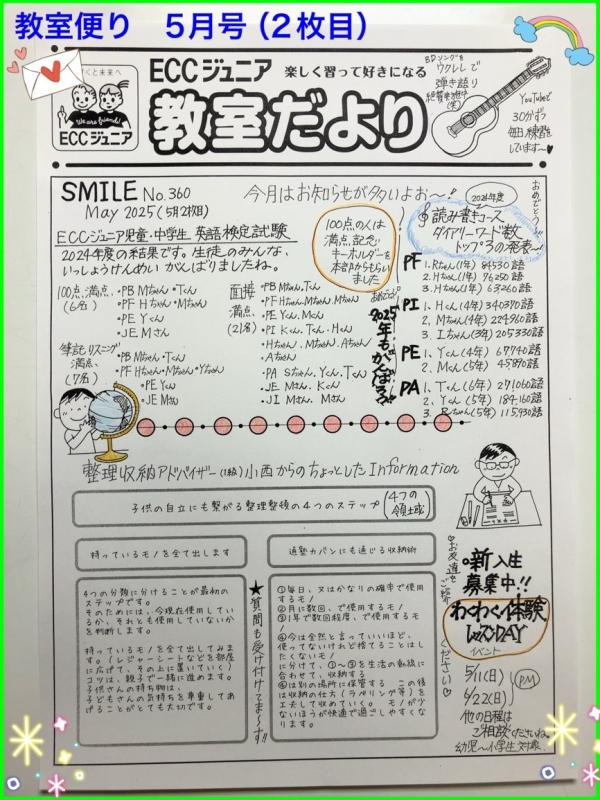 教室便り 5月号（2枚目）
ぼくと未来へ
We are friends!
ECCジュニア
ECCジュニア 楽しく習って好きになる
教室だより
EDソングを
ウクレレで
弾き語り
YouTubeで
30分ずつ
毎日練習
しています〜♥
SMILE No.360
May 2025(5月2枚目)
今月はお知らせが多いよぉ〜!
ECCジュニア児童・中学生 英語検定試験
2024年度の結果です。生徒のみんな、
いっしょうけんめい がんばりましたね。
100点満点、
(6名)
・PB Mちゃん・Tくん
・PF Hちゃん・Mちゃん
・PE Yくん
・JE Mさん
筆記リスニング
満点、
(7名)
・PB Mちゃん・Tくん
・PF Hちゃん・Mちゃん・Yちゃん
・PE Yくん
・JE Mさん
面接
満点、
(21名)
・PB Mちゃん、Tくん
・PF Hちゃん、Mちゃん、Mちゃん
・PE Yくん、Mくん
・PI Kくん、Tくん、Hくん
・Hちゃん、Mちゃん、Aちゃん
・Aちゃん
・PA Sちゃん、Yくん、Tくん
・JE Mさん、Kくん
・JI Mさん、Mさん
100点の人は
満点、記念に
キーホルダーを
本部からもらい
ました
おめでとう!
2025年もがんばろう!!
2024年度
おめでとう♡
読み書きコース
ダイアリーワード数
トップ3の発表〜!
PF 1. Rちゃん(1年) 84530語
2. Hちゃん(1年) 76250語
3. Hちゃん(1年) 63260語
PI 1. Hくん(4年) 340370語
2. Mちゃん(4年) 224960語
3. Iちゃん(3年) 205330語
PE 1. Yくん(4年) 67740語
2. Mくん(5年) 45890語
PA 1. Tくん(6年) 271060語
2. Yくん(5年) 184160語
3. Rちゃん(5年) 115930語
整理収納アドバイザー(1級)小西からのちょっとしたInformation
子供の自立にも繋がる整理整頓の4つのステップ(4つの領域)
持っているモノを全て出します
4つの分類に分けることが最初の
ステップです。
そのためには、今現在使用してい
るか、それとも使用していないかを
判断します。
持っているモノを全て出してみま
す。(レジャーシートなどを部屋
に広げて、その上に置いていく)
コツは、親子で一緒に進めます。
子供さんの持ち物は、
子どもさんの気持ちを尊重してあ
げることがとても大切です。
★質問も受け付けてま〜す!!
通塾カバンにも通じる収納術
①毎日、又はかなりの確率で使用
するモノ
②月に数回、で使用するモノ
③1年で数回程度、で使用するモ
ノ
④今は全然と言っていいほど、
使ってないけれど捨てることはし
たくないモノ
に分けて、①〜③を生活の動線に
合わせて、収納する
④は別の場所に保管する この後
は収納の仕方(ラベリング等)を
工夫して収めていく。 モノが少
ないほうが快適で過ごしやすくな
ります。
♡お友達をご紹介ください♡
・新入生
募集中!!
わくわく体験
レッスンDAY
イベント
5/11(日)
6/22(日)
(PM)
他の日程は
ご相談くださいね。
幼児〜小学生対象